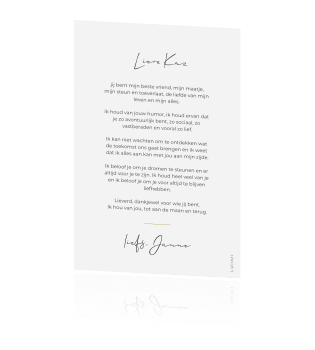 Lieve Kaz
Jij bent mijn beste vriend, mijn maatje,
mijn steun en toeverlaat, de liefde van mijn
leven en mijn alles.
Ik houd van jouw humor, ik houd ervan dat
je zo avontuurlijk bent, zo sociaal, zo
vastberaden en vooral zo lief.
Ik kan niet wachten om te ontdekken wat
de toekomst ons gaat brengen en ik weet
dat ik alles aan kan met jou aan mijn zijde.
Ik beloof je om je dromen te steunen en er
altijd voor je te zijn. Ik houd heel veel van je
en ik beloof je om je voor altijd te blijven
liefhebben.
Lieverd, dankjewel voor wie jij bent.
Ik hou van jou, tot aan de maan en terug.
liefs, Janne